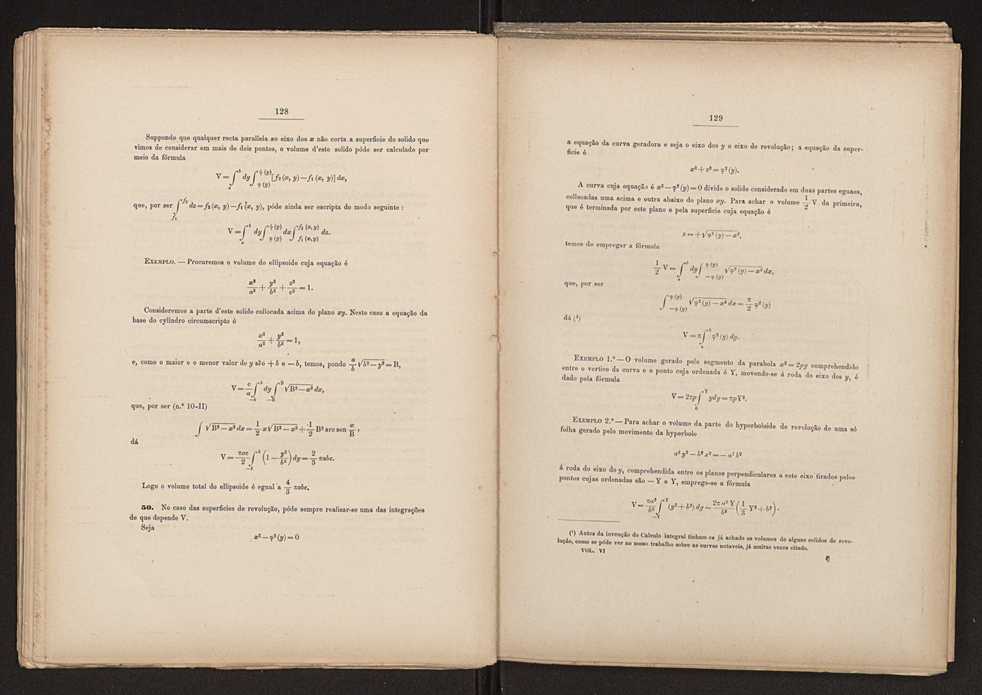 128
Suppondo que qualquer recta parallela ao eixo dos x não corta a superficie do solido que
vimos de considerar em mais de dois pontos, o volume d'este solido póde ser calculado por
meio da fórmula
V = ∫ dy ∫ [f₂(x, y) — f₁(x, y)] dx,
que, por ser ∫ dz = f₂(x, y) — f₁(x, y), póde ainda ser escripta do modo seguinte :
V = ∫ dy ∫ dx ∫ dz.
EXEMPLO. — Procuremos o volume do ellipsoide cuja equação é
x²/a² + y²/b² + z²/c² = 1.
Consideremos a parte d'este solido collocada acima do plano xy. Neste caso a equação da
base do cylindro circumscripto é
x²/a² + y²/b² = 1,
e, como o maior e o menor valor de y são + b e — b, temos, pondo a/b √b² — y² = B,
V = c/a ∫ dy ∫ √B² — x² dx,
que, por ser (n.º 10-II)
∫ √B² — x² dx = 1/2 x √B² — x² + 1/2 B² arc sen x/B ,
dá
V = πac/2 ∫ (1 — y²/b²) dy = 2/3 πabc.
Logo o volume total do ellipsoide é egual a 4/3 πabc.
50. No caso das superficies de revolução, póde sempre realisar-se uma das integrações
de que depende V.
Seja
x² — φ²(y) = 0
129
a equação da curva geradora e seja o eixo dos y o eixo de revolução; a equação da super-
ficie é
x² + z² = φ²(y).
A curva cuja equação é x² — φ²(y) = 0 divide o solido considerado em duas partes eguaes,
collocadas uma acima e outra abaixo do plano xy. Para achar o volume 1/2 V da primeira,
que é terminada por este plano e pela superficie cuja equação é
z = + √φ²(y) — x²,
temos de empregar a fórmula
1/2 V = ∫ dy ∫ √φ²(y) — x² dx,
que, por ser
∫ √φ²(y) — x² dx = π/2 φ²(y)
dá (¹)
V = π ∫ φ²(y) dy.
EXEMPLO 1.º — O volume gerado pelo segmento da parabola x² = 2py comprehendido
entre o vertice da curva e o ponto cuja ordenada é Y, movendo-se á roda do eixo dos y, é
dado pela fórmula
V = 2πp ∫ ydy = πpY².
EXEMPLO 2.º — Para achar o volume da parte do hyperboloide de revolução de uma só
folha gerado pelo movimento da hyperbole
a²y² — b²x² = — a²b²
á roda do eixo do y, comprehendida entre os planos perpendiculares a este eixo tirados pelos
pontos cujas ordenadas são — Y e Y, emprega-se a fórmula
V = πa²/b² ∫ (y² + b²) dy = 2πa²Y/b² (1/3 Y² + b²).
(¹) Antes da invenção do Calculo integral tinham os já achado os volumes de alguns solidos de revo-
lução, como se póde ver no nosso trabalho sobre as curvas notaveis, já muitas vezes citado.
VOL. VI